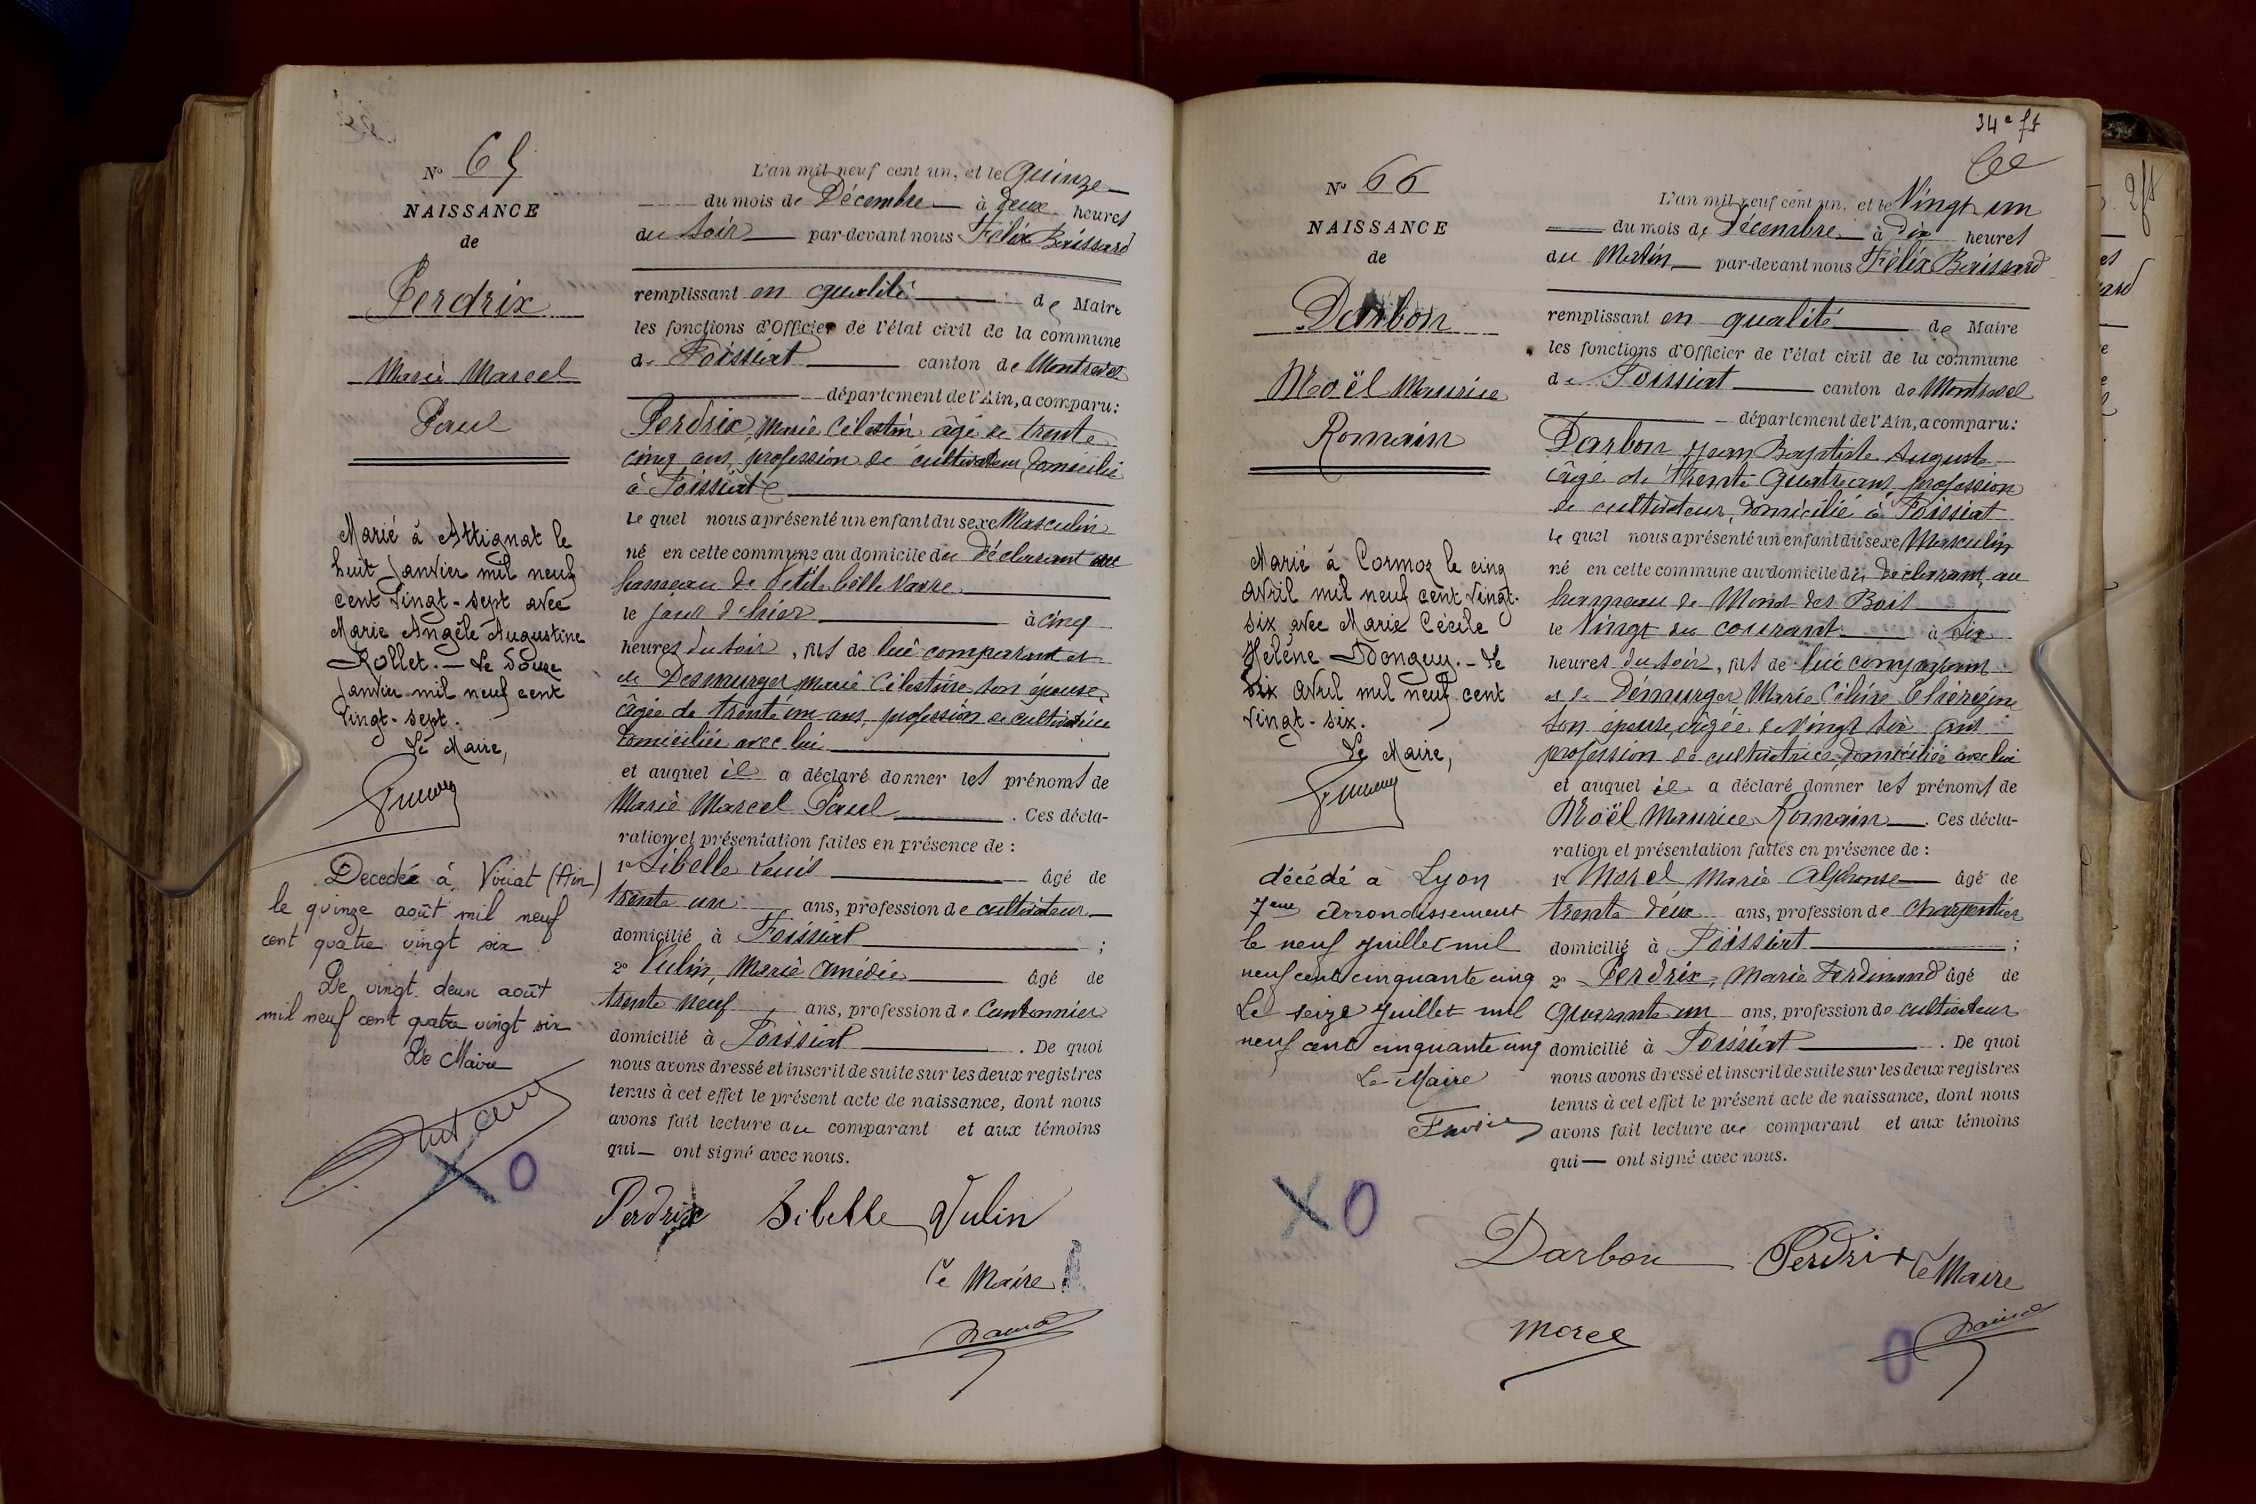 Nº 65
NAISSANCE
de
Perdrix
Marie Marcel
Paul
Marié à Attignat le
huit Janvier mil neuf
cent vingt-sept avec
Marie Angèle Augustine
Rollet. — Le Douze
Janvier mil neuf cent
vingt-sept.
Le Maire,
Décédée à Viriat (Ain)
le quinze août mil neuf
cent quatre vingt six
Le vingt deux août
mil neuf cent quatre vingt six
Le Maire
L'an mil neuf cent un, et le Quinze
du mois de Décembre à deux heures
du soir par-devant nous Félix Baissard
remplissant en qualité de Maire
les fonctions d'Officier de l'état civil de la commune
de Foissiat canton de Montrevel
département de l'Ain, a comparu:
Perdrix, Marie Célestin âgé de trente
cinq ans, profession de cultivateur, domicilié
à Foissiat
le quel nous a présenté un enfant du sexe Masculin
né en cette commune au domicile du déclarant au
hameau de Petite belle vavre
le jour d'hier à cinq
heures du soir, fils de lui comparant et
de Desmurger Marie Célestine son épouse,
âgée de trente un ans, profession de cultivatrice
domiciliée avec lui
et auquel il a déclaré donner les prénoms de
Marie Marcel Paul . Ces décla-
ration et présentation faites en présence de :
1º Sibelle Louis âgé de
trente un ans, profession de cultivateur
domicilié à Foissiat ;
2º Vulin, Marie Amédée âgé de
trente neuf ans, profession de Cantonnier
domicilié à Foissiat . De quoi
nous avons dressé et inscrit de suite sur les deux registres
tenus à cet effet le présent acte de naissance, dont nous
avons fait lecture au comparant et aux témoins
qui — ont signé avec nous.
Perdrix Sibelle Vulin
Le Maire
34e ft
Nº 66
NAISSANCE
de
Darbon
Noël Maurice
Romain
Marié à Cormoz le cinq
avril mil neuf cent vingt-
six avec Marie Cécile
Hélène Donguy. — Le
Six avril mil neuf cent
vingt-six.
Le Maire,
décédé à Lyon
7eme Arrondissement
le neuf juillet mil
neuf cent cinquante cinq
Le seize juillet mil
neuf cent cinquante cinq
Le Maire
L'an mil neuf cent un, et le Vingt un
du mois de Décembre à dix heures
du Matin par-devant nous Félix Baissard
remplissant en qualité de Maire
les fonctions d'Officier de l'état civil de la commune
de Foissiat canton de Montrevel
département de l'Ain, a comparu:
Darbon Jean Baptiste Auguste
âgé de trente Quatre ans, profession
de cultivateur, domicilié à Foissiat
le quel nous a présenté un enfant du sexe Masculin
né en cette commune au domicile du déclarant, au
hameau de Mons des Bois
le Vingt du courant à Six
heures du soir, fils de lui comparant
et de Démurger Marie Céline
son épouse, âgée de Vingt six ans
profession de cultivatrice domiciliée avec lui
et auquel il a déclaré donner les prénoms de
Noël Maurice Romain . Ces décla-
ration et présentation faites en présence de :
1º Morel Marie Alphonse âgé de
trente deux ans, profession de Charpentier
domicilié à Foissiat ;
2º Perdrix, Marie Ferdinand âgé de
Quarante un ans, profession de cultivateur
domicilié à Foissiat . De quoi
nous avons dressé et inscrit de suite sur les deux registres
tenus à cet effet le présent acte de naissance, dont nous
avons fait lecture au comparant et aux témoins
qui — ont signé avec nous.
Darbon Perdrix Le Maire
Morel